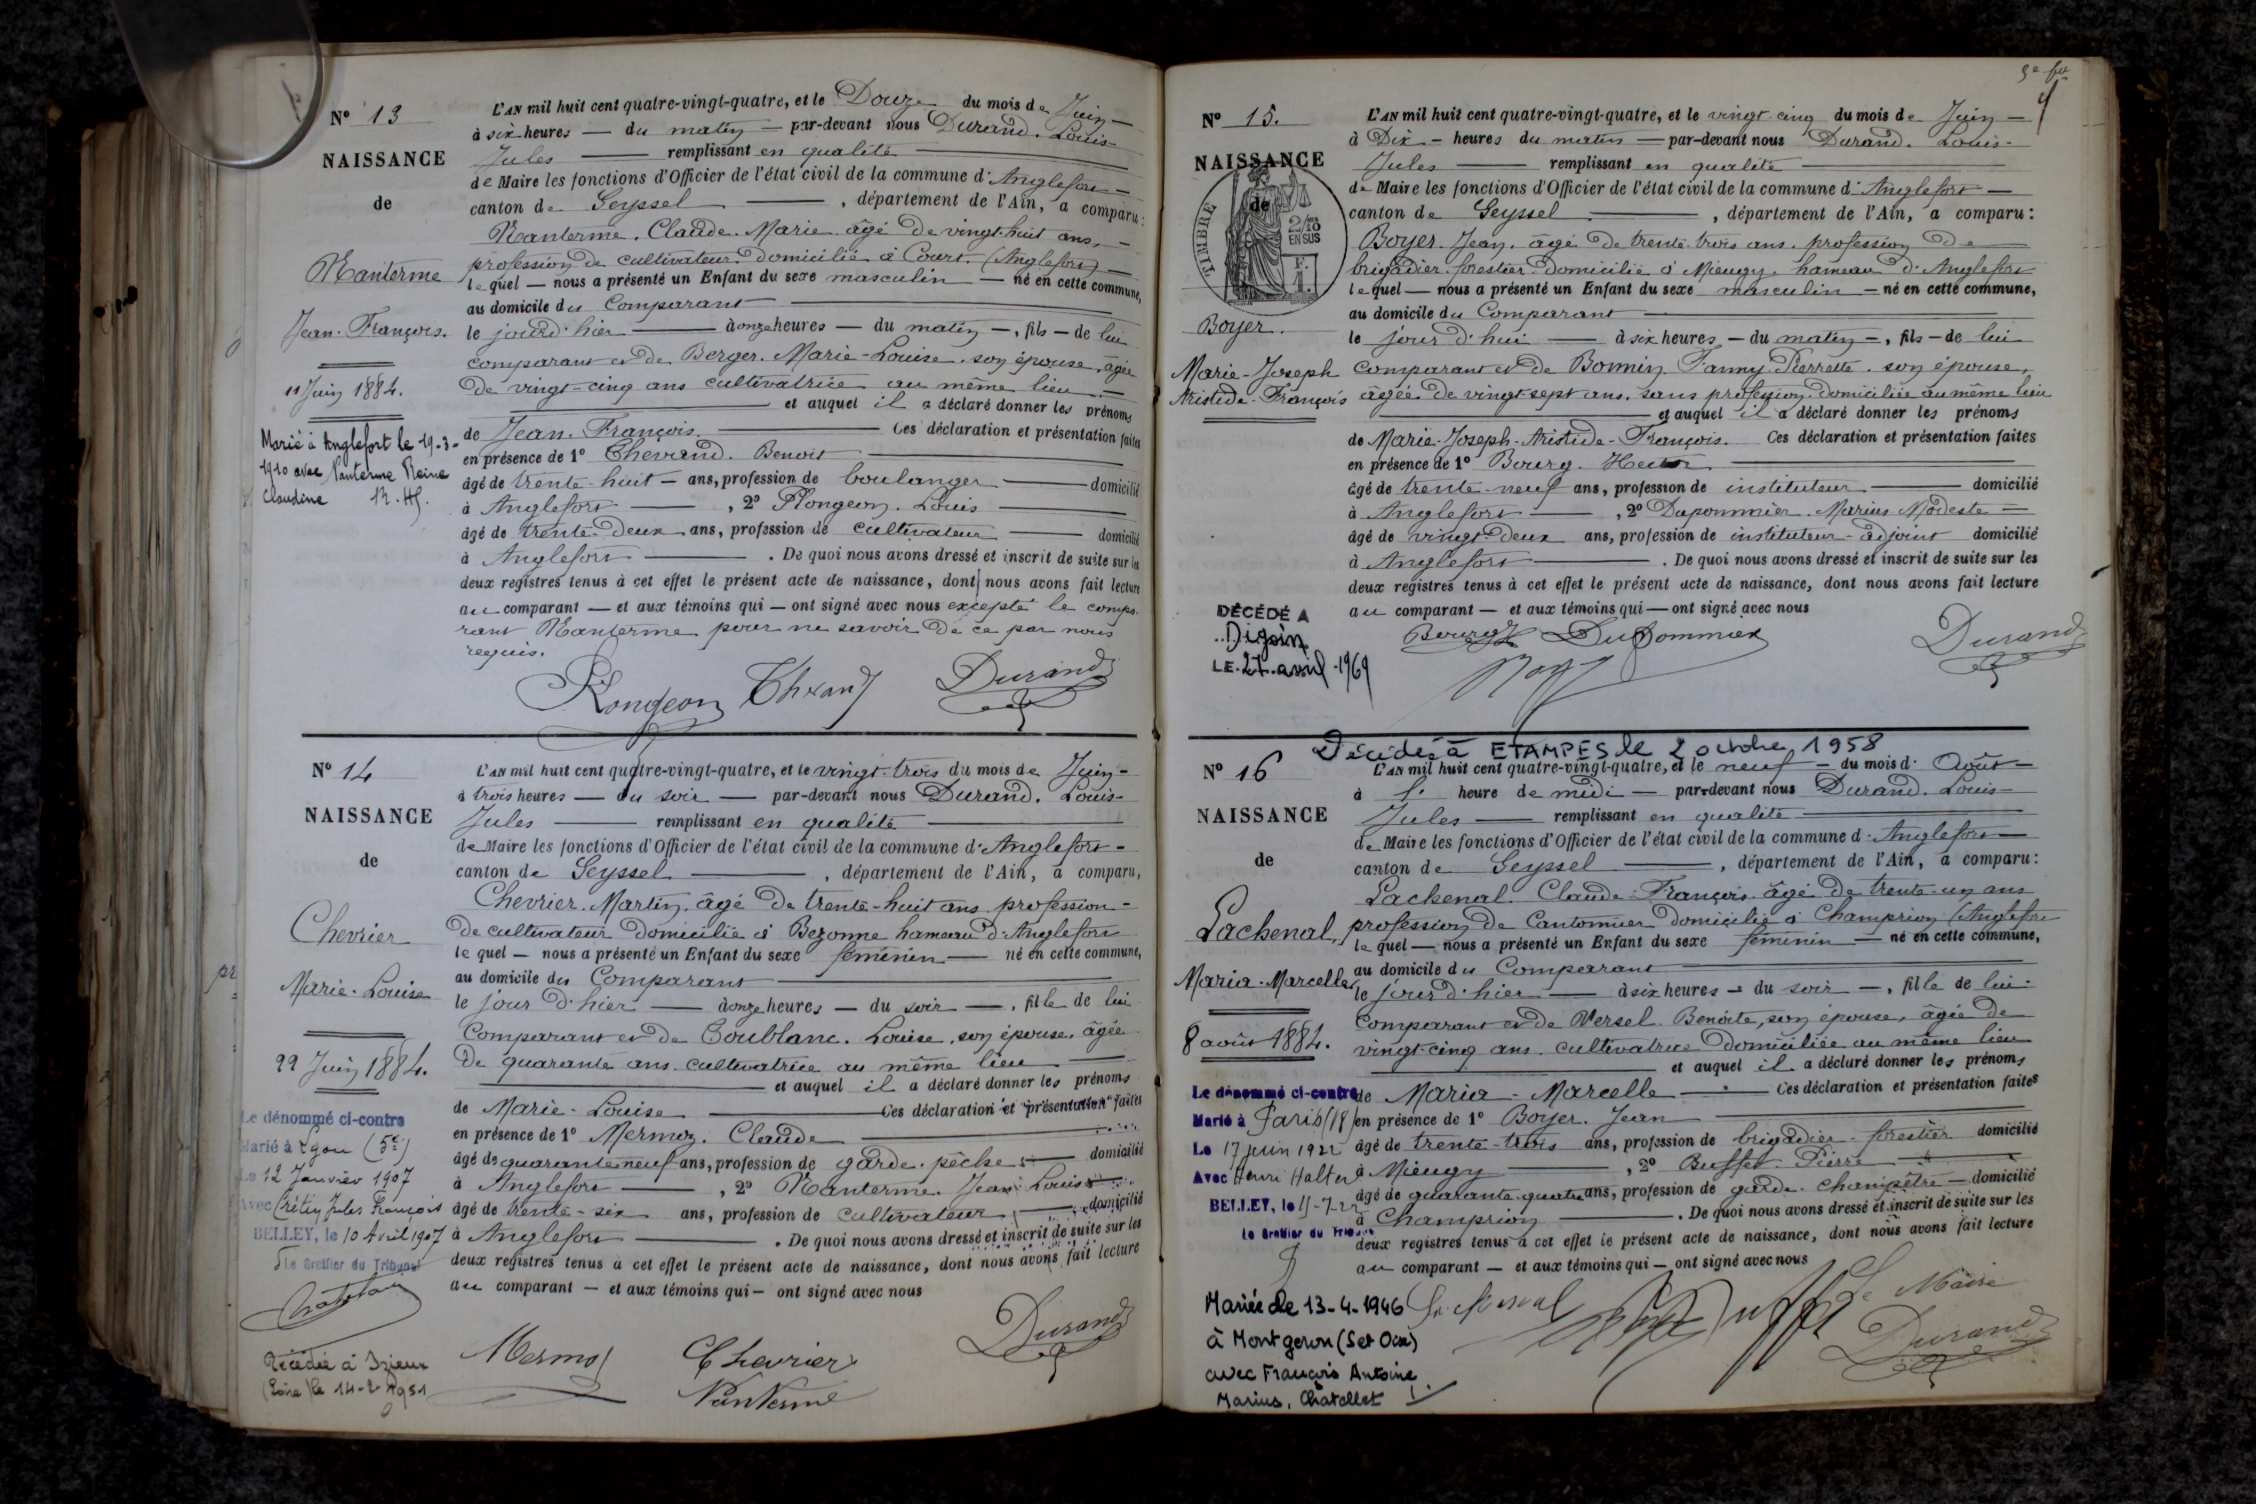 N° 13
NAISSANCE
de
Nanterme
Jean-François.
11 Juin 1884.
Marié à Anglefort le 19-3-
1910 avec Nanterme Reine
Claudine
L'AN mil huit cent quatre-vingt-quatre, et le Douze du mois de Juin —
à six heures — du matin — par-devant nous Durand. Louis-
Jules — remplissant en qualité —
de Maire les fonctions d'Officier de l'état civil de la commune d'Anglefort —
canton de Seyssel —, département de l'Ain, a comparu:
Nanterme. Claude. Marie. âgé de vingt-huit ans, —
profession de cultivateur domicilié à Court. (Anglefort) —
lequel — nous a présenté un Enfant du sexe masculin — né en cette commune,
au domicile du Comparant —
le jour d'hier — à onze heures — du matin —, fils — de lui
comparant et de Berger. Marie-Louise. son épouse, âgée
de vingt-cinq ans cultivatrice au même lieu —
— et auquel il a déclaré donner les prénoms
de Jean. François. — Ces déclaration et présentation faites
en présence de 1° Chevrand. Benoit —
âgé de trente-huit — ans, profession de boulanger — domicilié
à Anglefort —, 2° Plongeon. Louis —
âgé de trente-deux ans, profession de cultivateur — domicilié
à Anglefort —. De quoi nous avons dressé et inscrit de suite sur les
deux registres tenus à cet effet le présent acte de naissance, dont nous avons fait lecture
au comparant — et aux témoins qui — ont signé avec nous excepté le compa-
rant Nanterme pour ne savoir de ce par nous
requis.
Plongeon Durand
N° 14
NAISSANCE
de
Chevrier
Marie-Louise
22 Juin 1884.
Le dénommé ci-contre
Marié à Lyon (5e)
Le 12 Janvier 1907
Avec Crétin Jules François
BELLEY, le 10 Avril 1907
Le Greffier du Tribunal
Décédée à Izieux
(Loire) le 14-2-1951
L'AN mil huit cent quatre-vingt-quatre, et le vingt-trois du mois de Juin-
à trois heures — du soir — par-devant nous Durand. Louis-
Jules — remplissant en qualité —
de Maire les fonctions d'Officier de l'état civil de la commune d'Anglefort-
canton de Seyssel —, département de l'Ain, a comparu,
Chevrier. Martin. âgé de trente-huit ans profession-
de cultivateur domicilié à Bezonne hameau d'Anglefort
lequel — nous a présenté un Enfant du sexe féminin — né en cette commune,
au domicile du Comparant —
le jour d'hier — à onze heures — du soir —, fille de lui
Comparant et de Coublanc. Louise, son épouse, âgée
de quarante ans cultivatrice au même lieu —
— et auquel il a déclaré donner les prénoms
de Marie-Louise — Ces déclaration et présentation faites
en présence de 1° Mermoz. Claude —
âgé de quarante neuf ans, profession de garde-pêche — domicilié
à Anglefort —, 2° Nanterme. Jean Louis —
âgé de trente-six ans, profession de cultivateur — domicilié
à Anglefort —. De quoi nous avons dressé et inscrit de suite sur les
deux registres tenus à cet effet le présent acte de naissance, dont nous avons fait lecture
au comparant — et aux témoins qui — ont signé avec nous
Mermoz Chevrier Durand
Nanterme
N° 15.
NAISSANCE
de
TIMBRE
2/10
EN SUS
F.
1.
Boyer.
Marie-Joseph
Aristide-François
DÉCÉDÉ A
Digoin
LE 27 avril 1969
L'AN mil huit cent quatre-vingt-quatre, et le vingt-cinq du mois de Juin —
à Dix — heures du matin — par-devant nous Durand. Louis-
Jules — remplissant en qualité —
de Maire les fonctions d'Officier de l'état civil de la commune d'Anglefort —
canton de Seyssel —, département de l'Ain, a comparu:
Boyer. Jean. âgé de trente-trois ans. profession de —
brigadier-forestier domicilié à Mieugy. hameau d'Anglefort
lequel — nous a présenté un Enfant du sexe masculin — né en cette commune,
au domicile du Comparant —
le jour d'hui — à six heures — du matin —, fils — de lui
comparant et de Bonnin Fanny-Pierrette. son épouse,
âgée de vingt-sept ans. sans profession domiciliée au même lieu
— et auquel il a déclaré donner les prénoms
de Marie-Joseph-Aristide-François. Ces déclaration et présentation faites
en présence de 1° Bourg. Hector —
âgé de trente-neuf ans, profession de instituteur — domicilié
à Anglefort —, 2° Dupommier. Marius Modeste —
âgé de vingt-deux ans, profession de instituteur-adjoint domicilié
à Anglefort —. De quoi nous avons dressé et inscrit de suite sur les
deux registres tenus à cet effet le présent acte de naissance, dont nous avons fait lecture
au comparant — et aux témoins qui — ont signé avec nous
Bourg Dupommier Durand
N° 16
NAISSANCE
de
Lachenal,
Maria-Marcelle
8 août 1884.
Le dénommé ci-contre
Marié à Paris (18)
Le 17 juin 1922
Avec Henri Halter
BELLEY, le 11-7-22
Le Greffier du Tribunal
Mariée le 13-4-1946
à Montgeron (S et Oise)
avec François Antoine
Marius, Chatellet
Décédée à ETAMPES le 2 octobre 1958
L'AN mil huit cent quatre-vingt-quatre, et le neuf — du mois d'Août —
à l' heure de midi — par-devant nous Durand. Louis-
Jules — remplissant en qualité —
de Maire les fonctions d'Officier de l'état civil de la commune d'Anglefort —
canton de Seyssel —, département de l'Ain, a comparu:
Lachenal. Claude-François âgé de trente-un ans
profession de Cantonnier domicilié à Champrion (Anglefort
lequel — nous a présenté un Enfant du sexe féminin — né en cette commune,
au domicile du Comparant —
le jour d'hier — à six heures — du soir —, fille de lui
comparant et de Versel Benoite, son épouse, âgée de
vingt-cinq ans. cultivatrice domiciliée au même lieu
— et auquel il a déclaré donner les prénoms
de Maria-Marcelle — Ces déclaration et présentation faites
en présence de 1° Boyer. Jean —
âgé de trente-trois ans, profession de brigadier-forestier domicilié
à Mieugy —, 2° Buffet. Pierre —
âgé de quarante-quatre ans, profession de garde-champêtre — domicilié
à Champrion —. De quoi nous avons dressé et inscrit de suite sur les
deux registres tenus à cet effet le présent acte de naissance, dont nous avons fait lecture
au comparant — et aux témoins qui — ont signé avec nous
Lachenal Buffet Le Maire
Durand